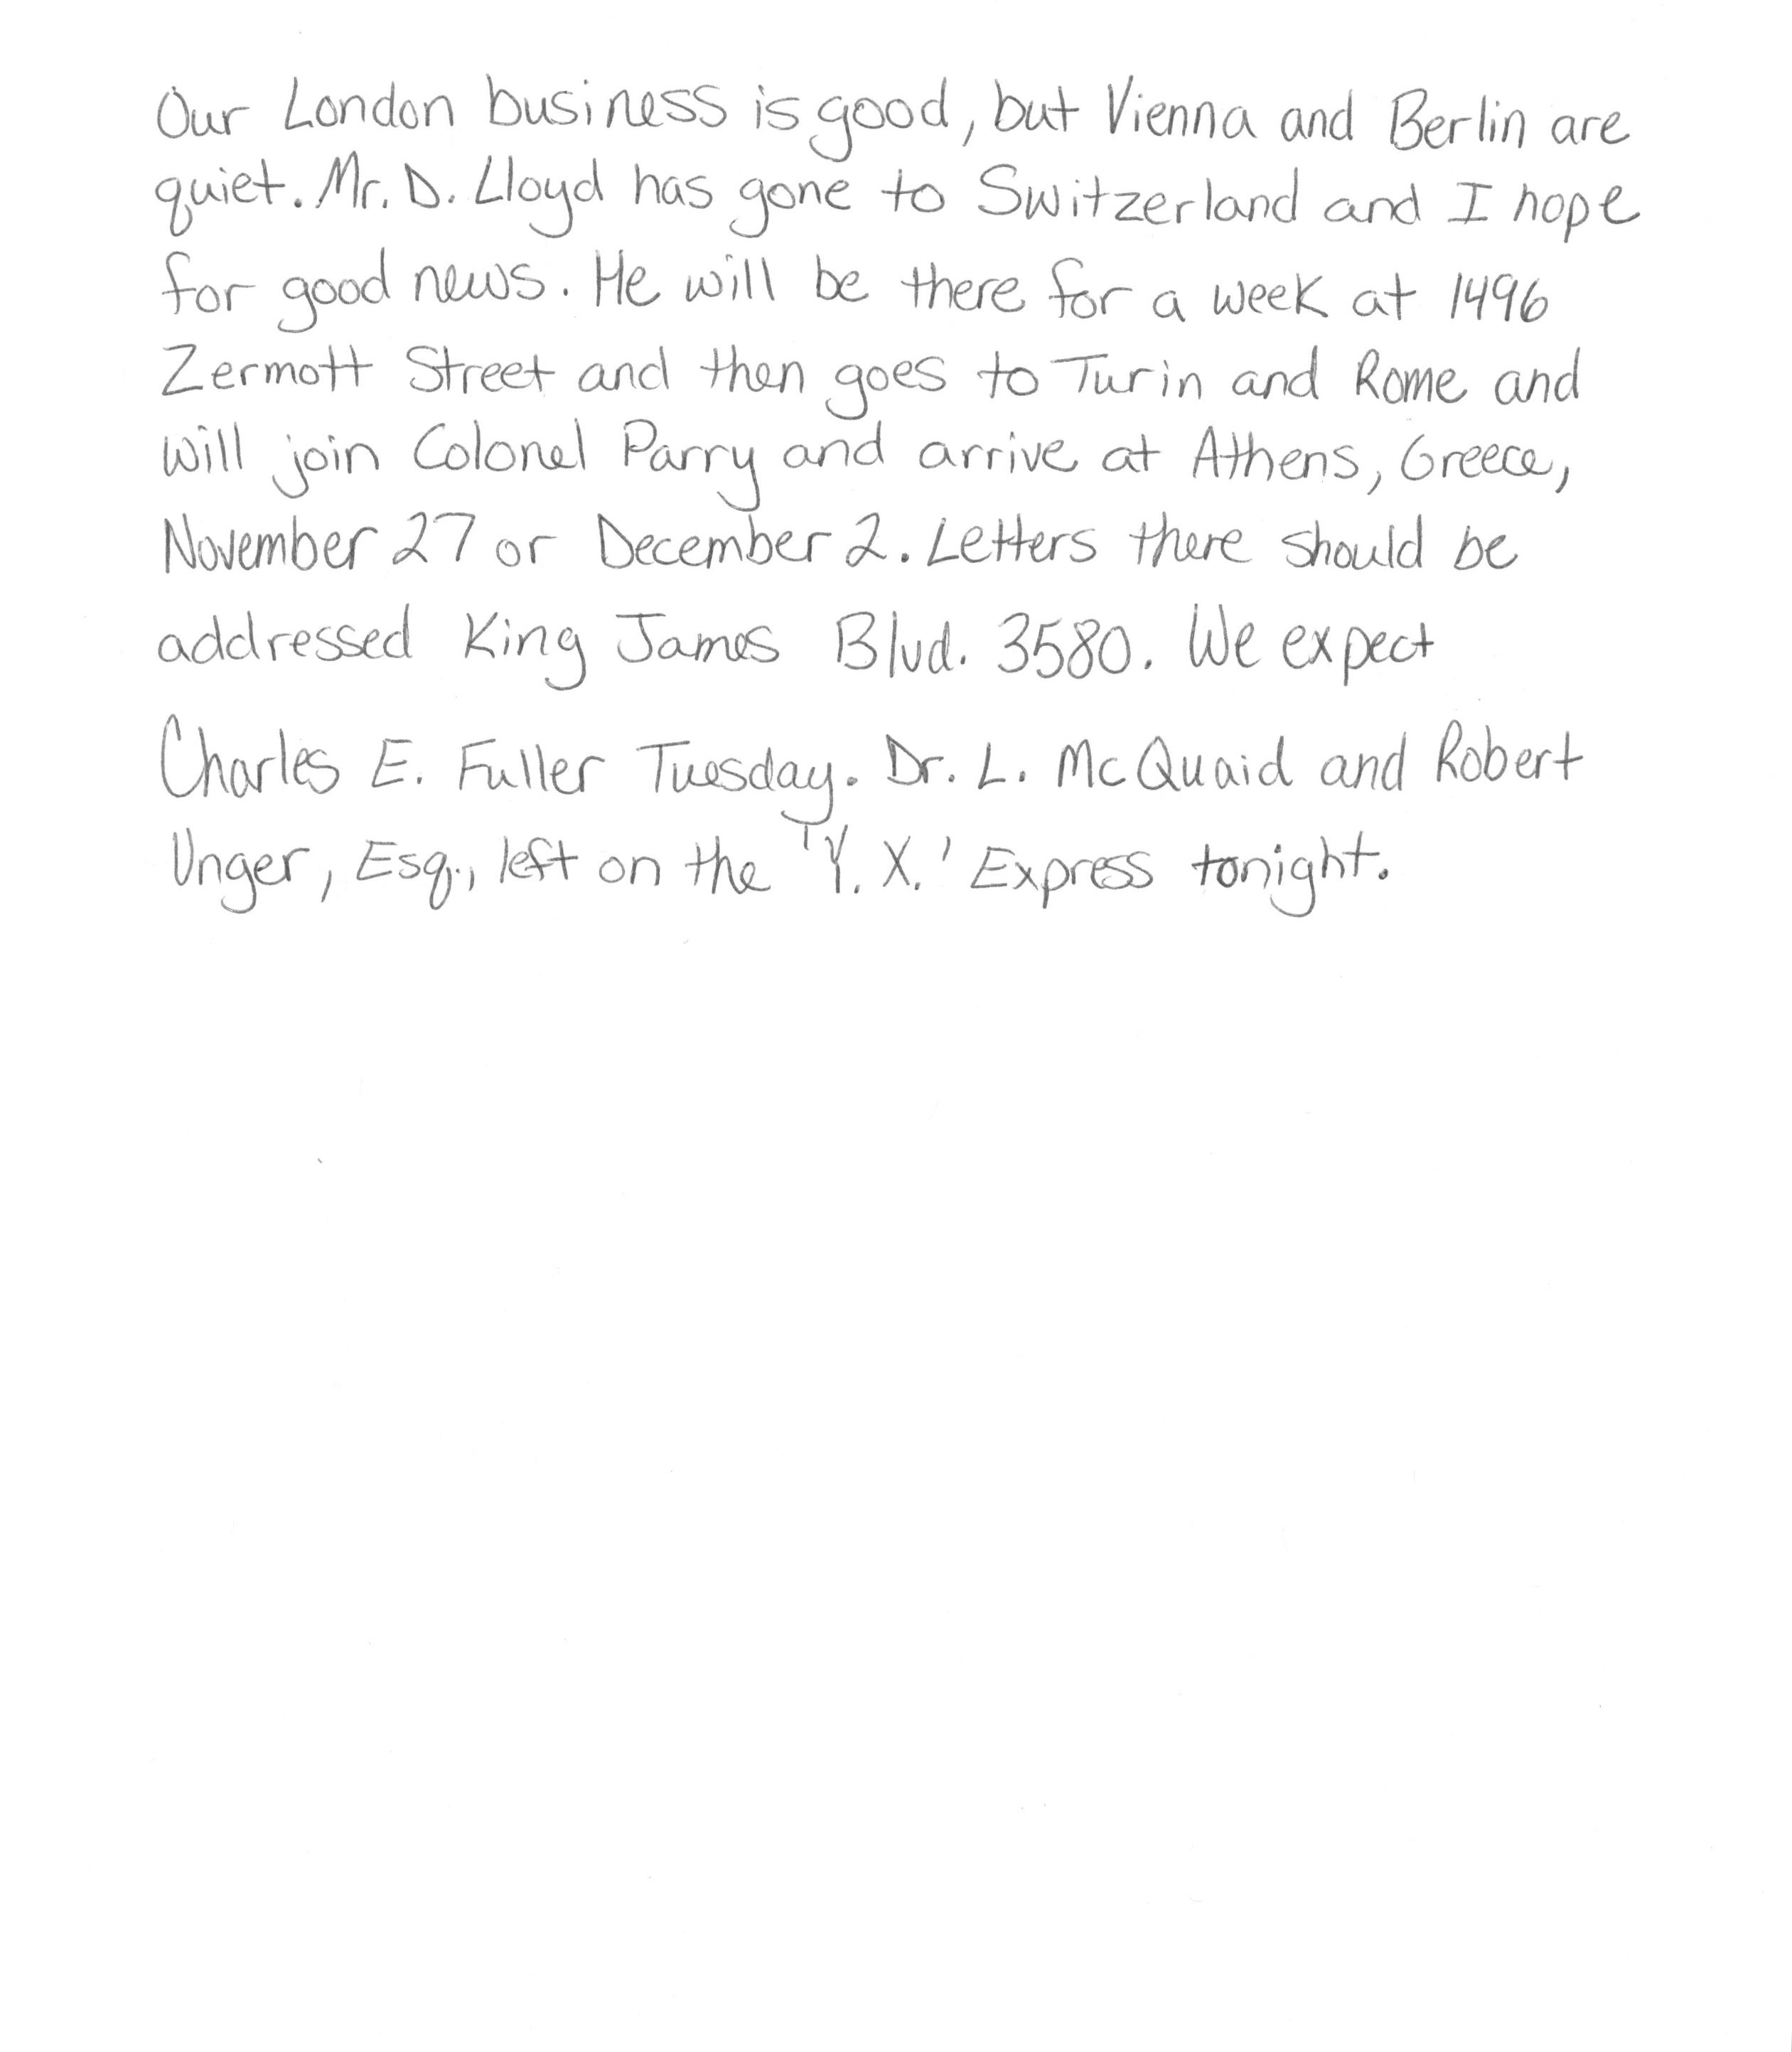 Our London business is good, but Vienna and Berlin are
quiet. Mr. D. Lloyd has gone to Switzerland and I hope
for good news. He will be there for a week at 1496
Zermott Street and then goes to Turin and Rome and
will join Colonel Parry and arrive at Athens, Greece,
November 27 or December 2. Letters there should be
addressed King James Blvd. 3580. We expect
Charles E. Fuller Tuesday. Dr. L. McQuaid and Robert
Unger, Esq., left on the 'Y. X.' Express tonight.